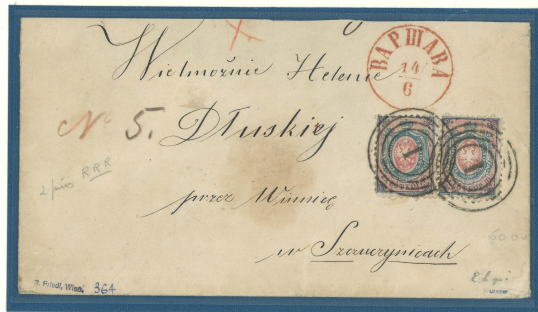 ВАРШАВА
14
6
Wielmożnie Helenie
№ 5.
Dłuskiej
2 RRR
przez Winnicę
w Szczuczyńcach
S. Friedl, Wien. 364